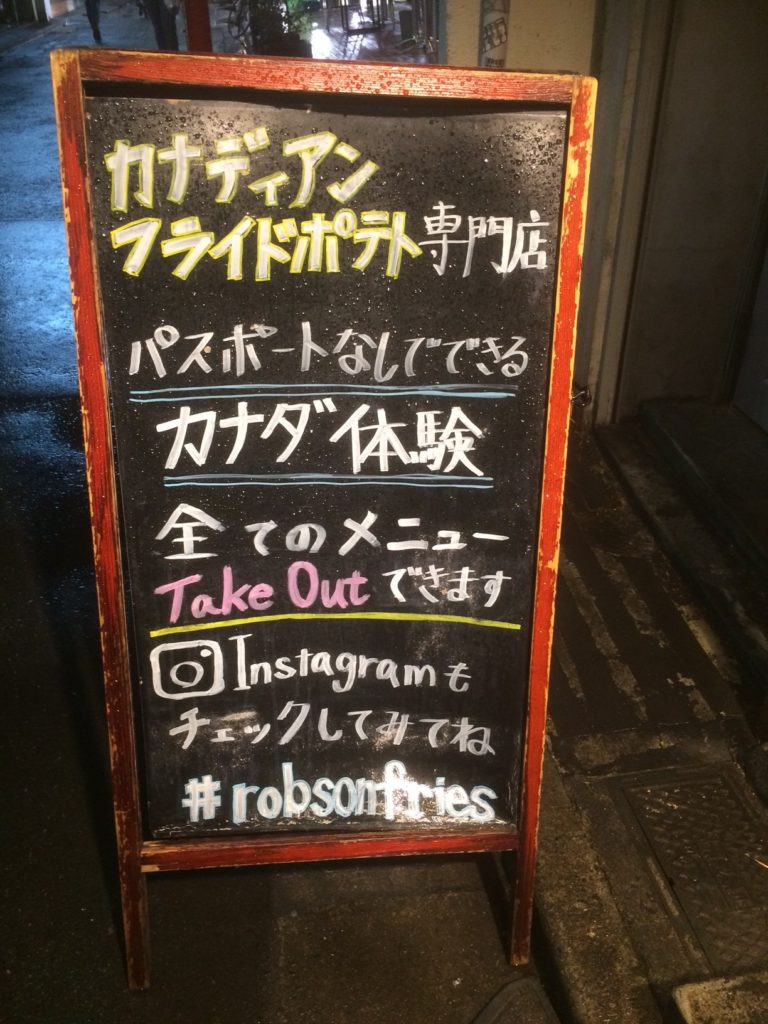 カナディアン
フライドポテト専門店
パスポートなしでできる
カナダ体験
全てのメニュー
Take Outできます
Instagramも
チェックしてみてね
#robsonfries